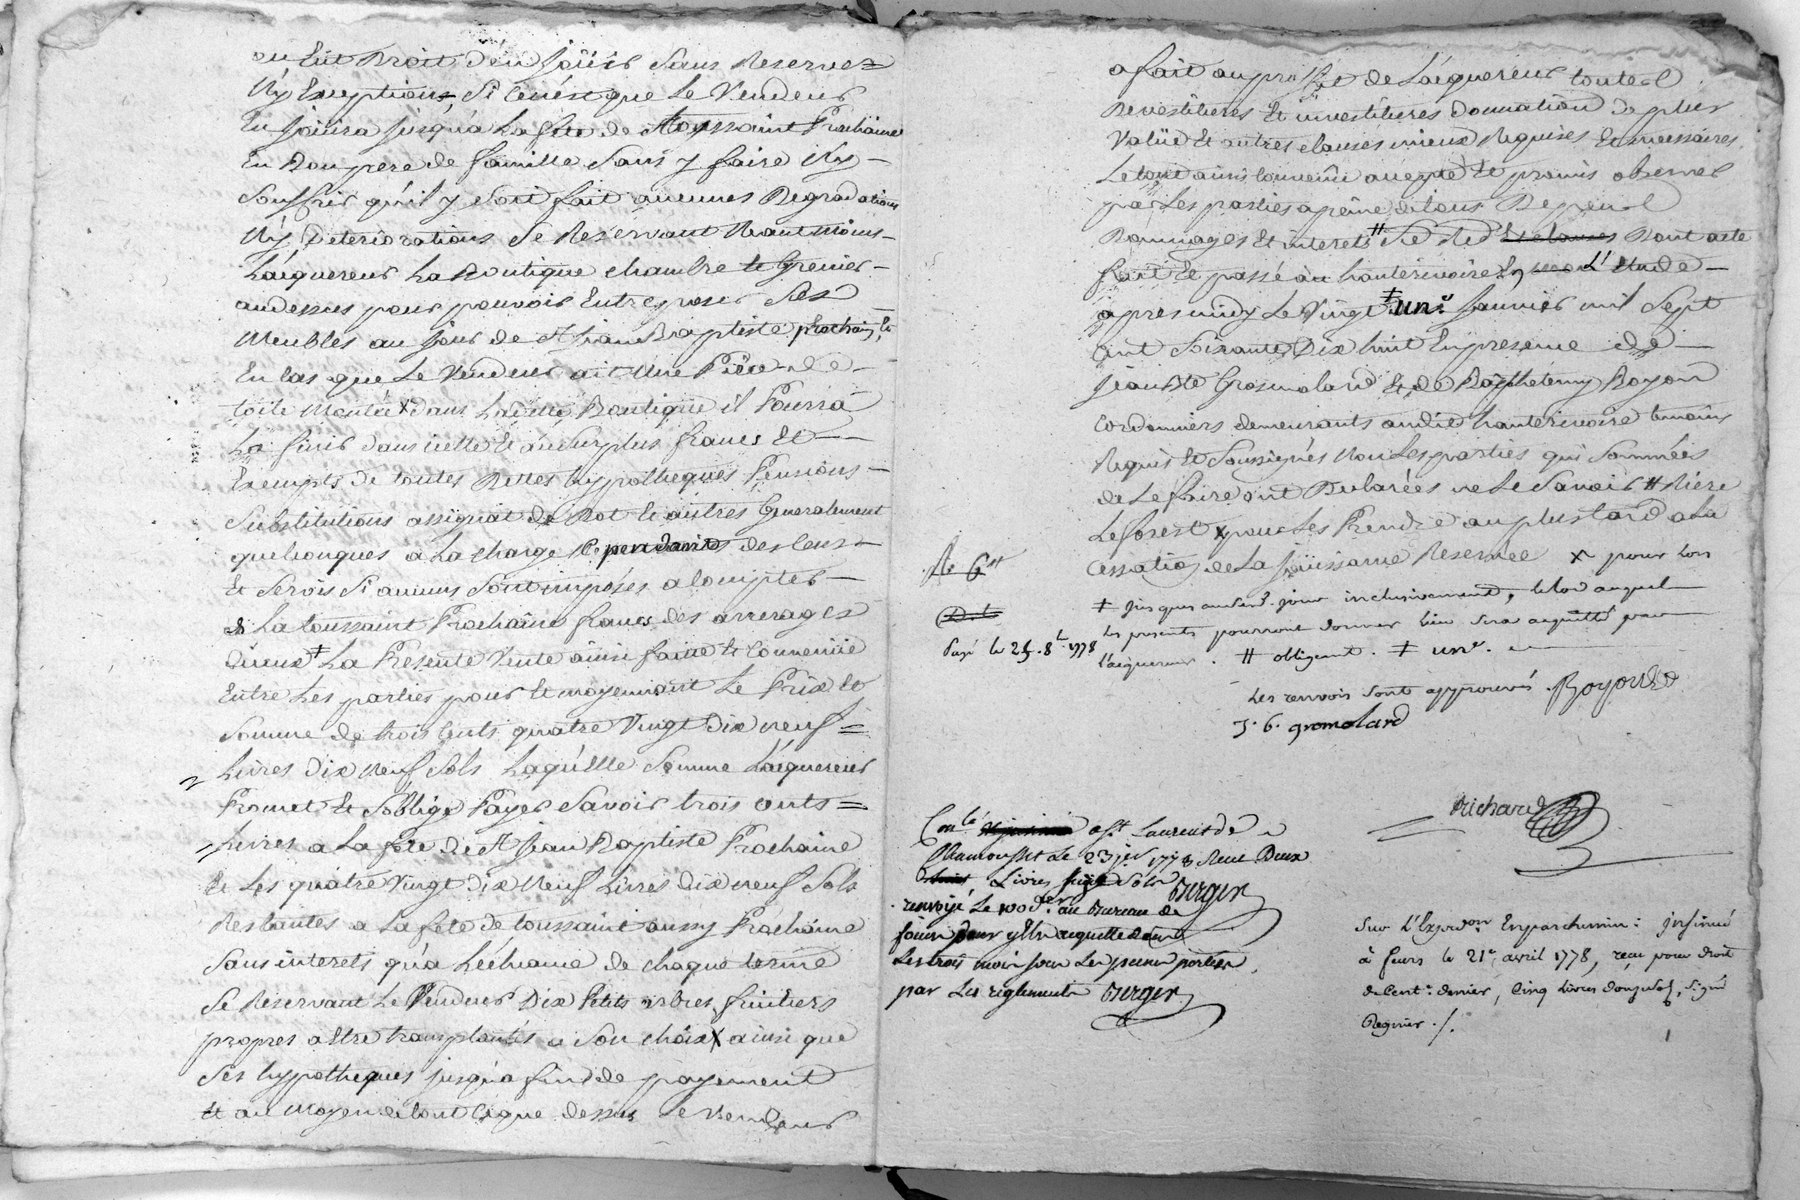 ou Eut Droit d'en Joüir Sans Reserve
Ny Exceptions, Si Cen'est que Le Vendeur
En Joüira Jusqu'a La fete de Toussaint Prochaine
En Bon pere de famille Sans y faire Ny
Souffrir qu'il y Soit fait aucunes Degradations
Ny Deteriorations Se Reservant Neantmoins
L'acquereur La Boutique chambre et Grenier
audessus pour pouvoir Entreposer Ses
Meubles au Jour de St Jean Baptiste prochain, et
En Cas que Le Vendeur ait Une Piece de
toile Montée dans Ladite Boutique il Pourra
La finir dans icelle et au Surplus francs Et
Exempts de toutes Dettes hypotheques Pensions
Substitutions assignat de Dot et autres Generalement
quelconques a La charge Cependant des Cens
Et Servis Si aucuns Sont imposés a Compter
de La toussaint Prochaine francs des arrerages
La Presente Vente ainsi faitte et Convenüe
Entre Les parties pour et moyennant Le Prix et
Somme de trois Cents quatre Vingt Dix neuf =
Livres Dix Neuf Sols Laquelle Somme L'acquereur
Promet et S'oblige Payer Savoir trois Cents =
Livres a La fete de St Jean Baptiste Prochaine
Et Les quatre Vingt Dix Neuf Livres Dix neuf Sols
Restantes a La fete de toussaint aussy Prochaine
Sans interets qu'a L'echeance de chaque terme
Se Reservant Le Vendeur Dix Petits arbres fruitiers
propres a Etre transplantés a Son choix X ainsi que
Ses hypotheques jusqu'a fin de payement
Et au Moyen de tout Ceque dessus Le Vendeur
a fait au proffit de L'acquereur toutes
Devestitures Et investitures donnation de plus
Value Et autres clauses mieux Requises Et necessaires
Le tout ainsi Convenu accepté et promis observer
par Les parties a peine de tous Depens
Dommages Et interets # Dont acte
fait Et passé au hauterivoire L'Etude
apres midy Le Vingt ‡ un.e Janvier mil Sept
Cent Soixante Dix huit En presence de
Jean Bte Gromolard Et de Barthelemy Boyon
Cordonniers demeurants audit hauterivoire temoins
Requis Et Soussignés Non Les parties qui Sommées
de Le faire ont Declarées ne Le Savoir
pour Les Prendre au plus tard a La
Cessation de La Joüissance Reservée X pour Lors
‡ Jusques audit jour inclusivement, le lod auquel
les presents pourront donner lieu Sera acquitté par
l'acquereur. # obligent. ‡ un.e
Les renvois Sont approuvés. Boyon
J. b. gromolard
Payé le 25. 8.e 1778
Richard
Con.lé a St Laurent de
Chamousset Le 23 jer 1778 Reçu Deux
Livres Sols Berger
renvoyé Le 100.e denier au Bureau de
feurs pour y Etre acquitté dans
Les trois mois Sous Les peines portées
par Les reglements Berger
Sur L'Expedon. En parchemin : Insinué
à feurs le 21.e avril 1778, reçu pour droit
de Cent.e denier, Cinq livres douze Sols, Signé
Regnier ./.